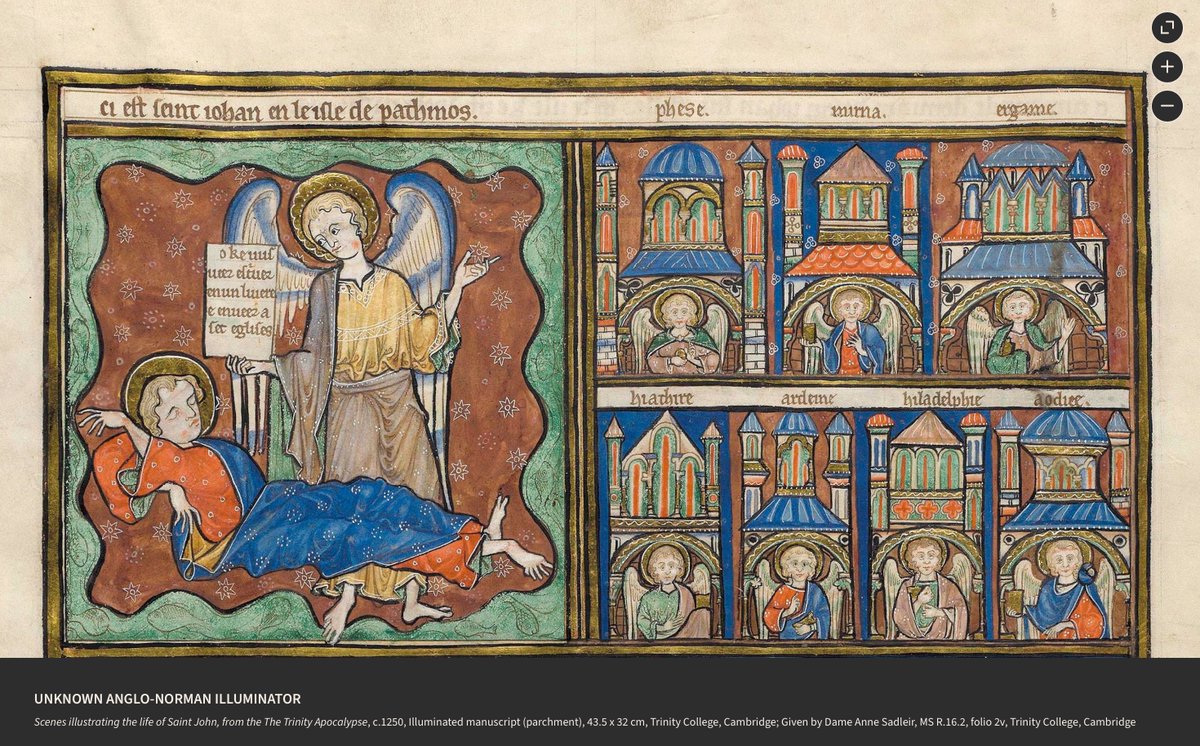 ci est seint iohan en le isle de pathmos.
phese.
mirna.
ergame.
o ke uus
ueez escriuez
en un liuere
e enueez a
set eglises
hiathire
ardeine
hiladelphie
aodiec.
UNKNOWN ANGLO-NORMAN ILLUMINATOR
Scenes illustrating the life of Saint John, from the The Trinity Apocalypse, c.1250, Illuminated manuscript (parchment), 43.5 x 32 cm, Trinity College, Cambridge; Given by Dame Anne Sadleir, MS R.16.2, folio 2v, Trinity College, Cambridge